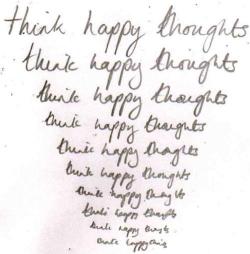 think happy thoughts
think happy thoughts
think happy thoughts
think happy thoughts
think happy thoughts
think happy thoughts
think happy thoughts
think happy thoughts
think happy thoughts
think happy